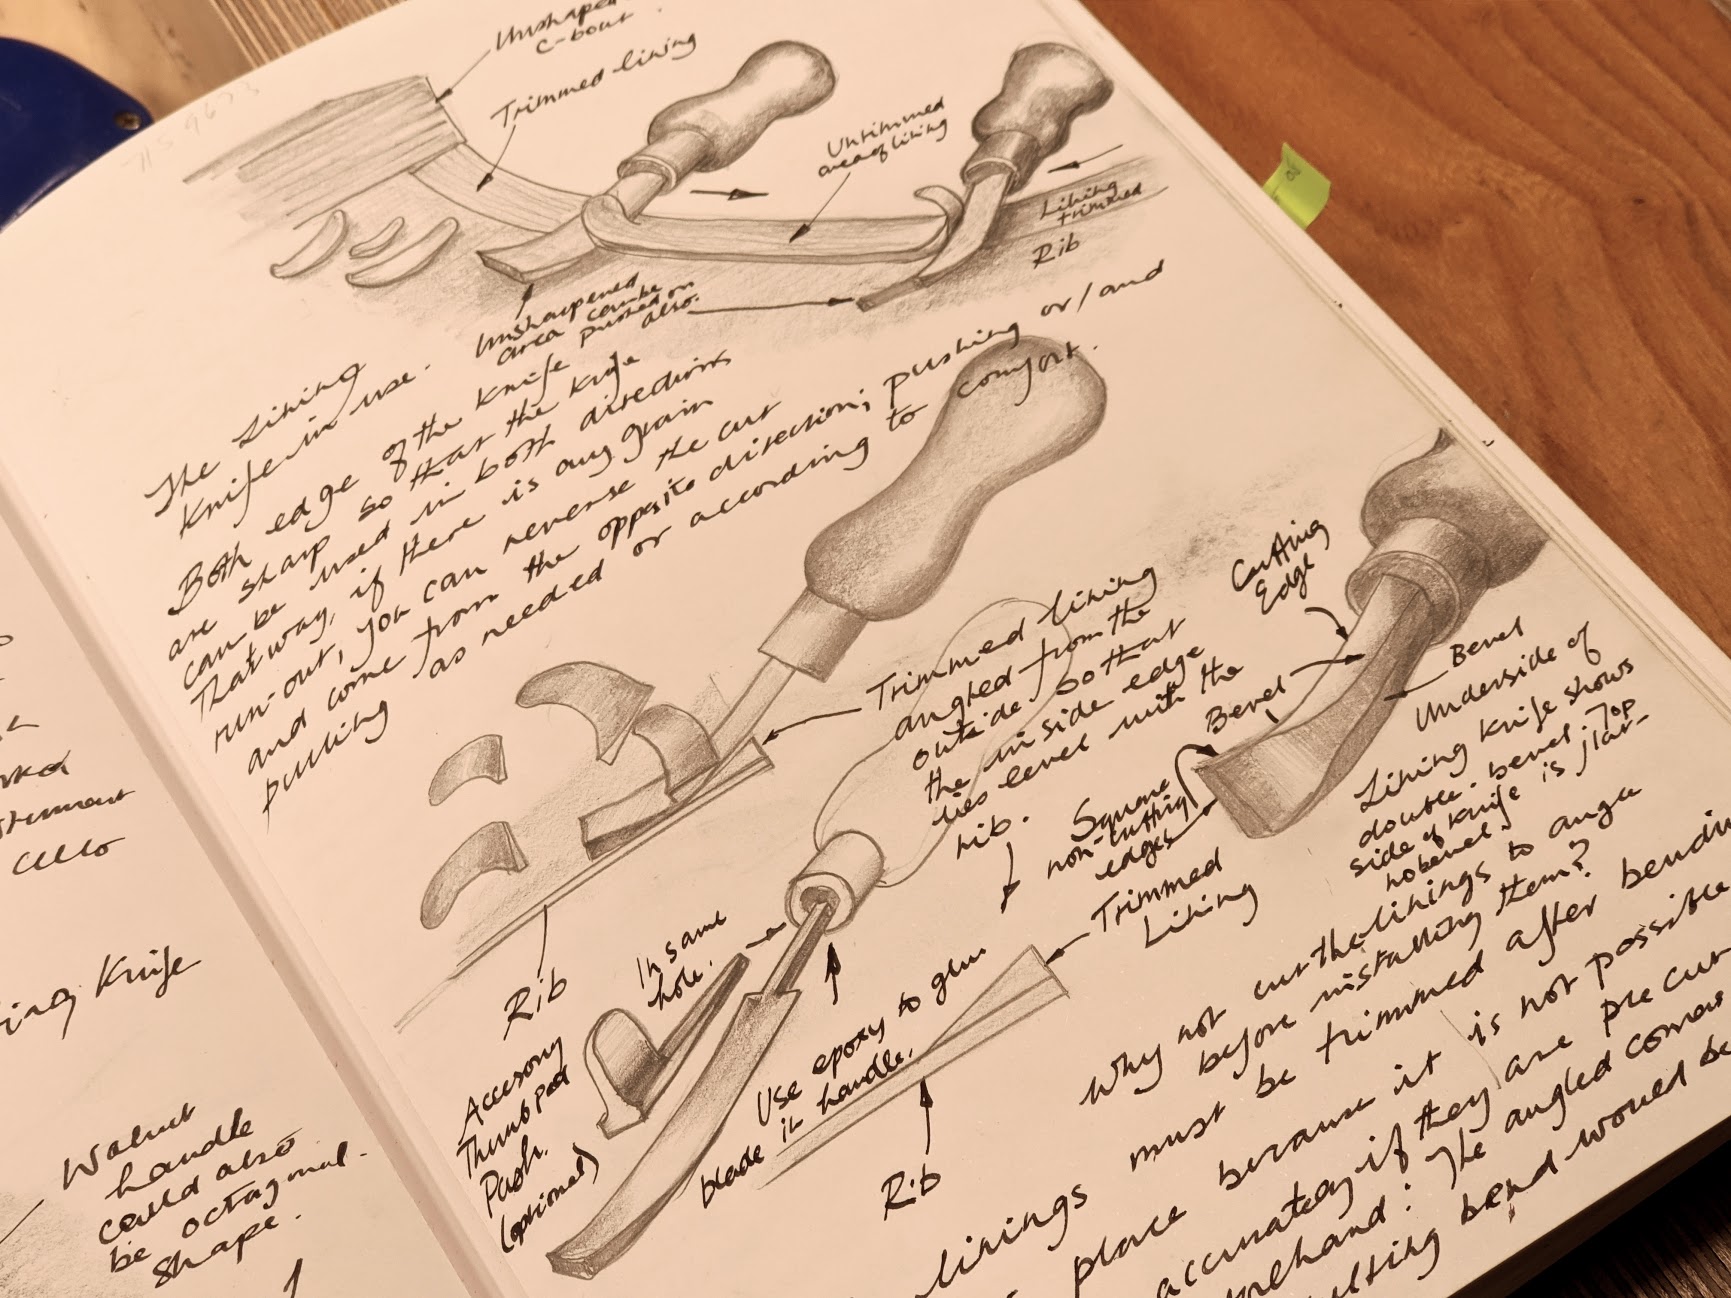 Unshaped
C-bout.
Trimmed lining
Untrimmed
area of lining
Lining
trimmed
Rib
Unsharpened
area can be
pushed on
also.
The Lining
Knife in use.
Both edge of the knife
are sharp so that the knife
can be used in both directions
That way, if there is any grain
run-out, you can reverse the cut
and come from the opposite direction; pushing or/and
pulling as needed or according to comfort.
Trimmed lining
angled from the
outside so that
the inside edge
lies level with the
rib.
Cutting
Edge
Bevel
Bevel
Underside of
Lining Knife shows
double bevel. Top
side of knife is flat-
no bevel.
Square
non-cutting
edges
Trimmed
Lining
Rib
In same
hole.
Accesory
Thumb pad
Push.
(optional)
Use epoxy to glue
blade in handle.
Rib
Why not cut the linings to angle
before installing them?
linings must be trimmed after bending
place because it is not possible
accurately if they are pre cut
The angled
bend would be
cello
Knife
Walnut
handle
could also
be octagonal
shape.